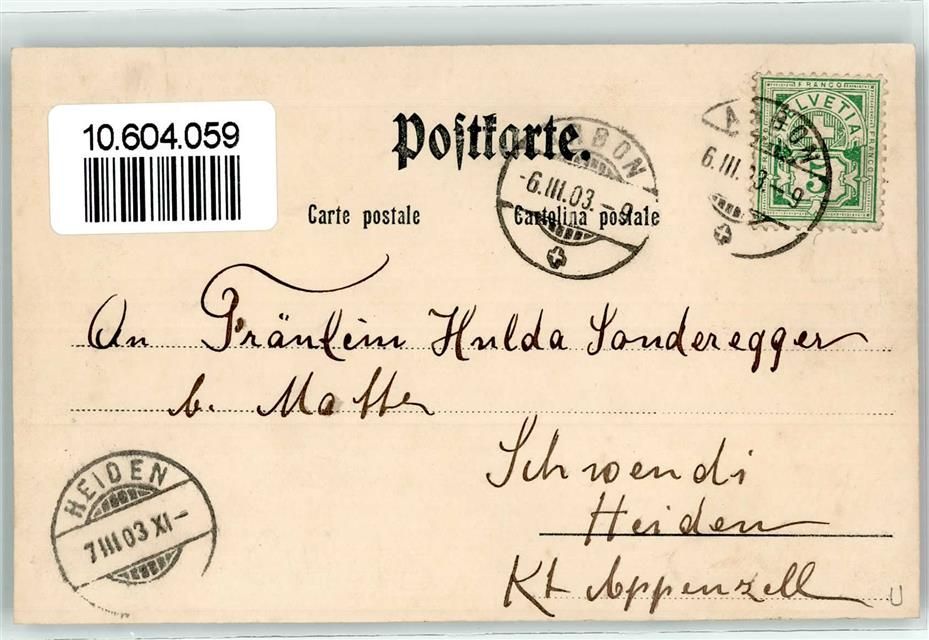 10.604.059
Postkarte.
Carte postale Cartolina postale
BON
-6.III.03.-9
BON
6.III.03.-9
FRANCO
HELVETIA
FRANCO
5
An Fräulein Hulda Sonderegger
b.
Schwendi
Heiden
Kt Appenzell
HEIDEN
7 III 03 XI-
U